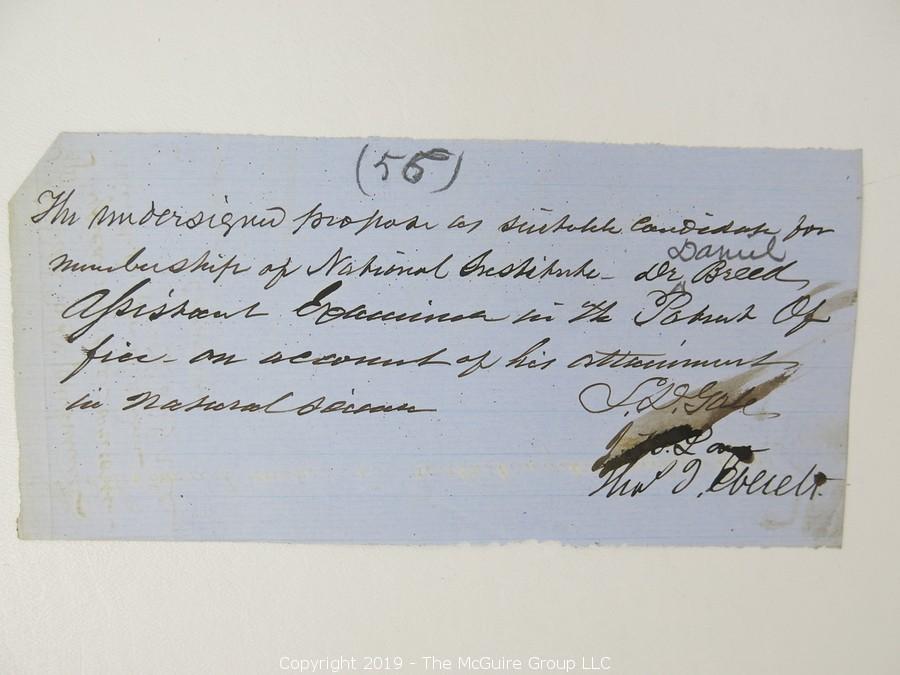 (56)
The undersigned propose as suitable candidate for
Daniel
membership of National Institute - Dr Breed
Assistant Examiner in the Patent Of
fice - on account of his attainment
in Natural science
L. D. Gale
Thos T. Everett.
Copyright 2019 - The McGuire Group LLC